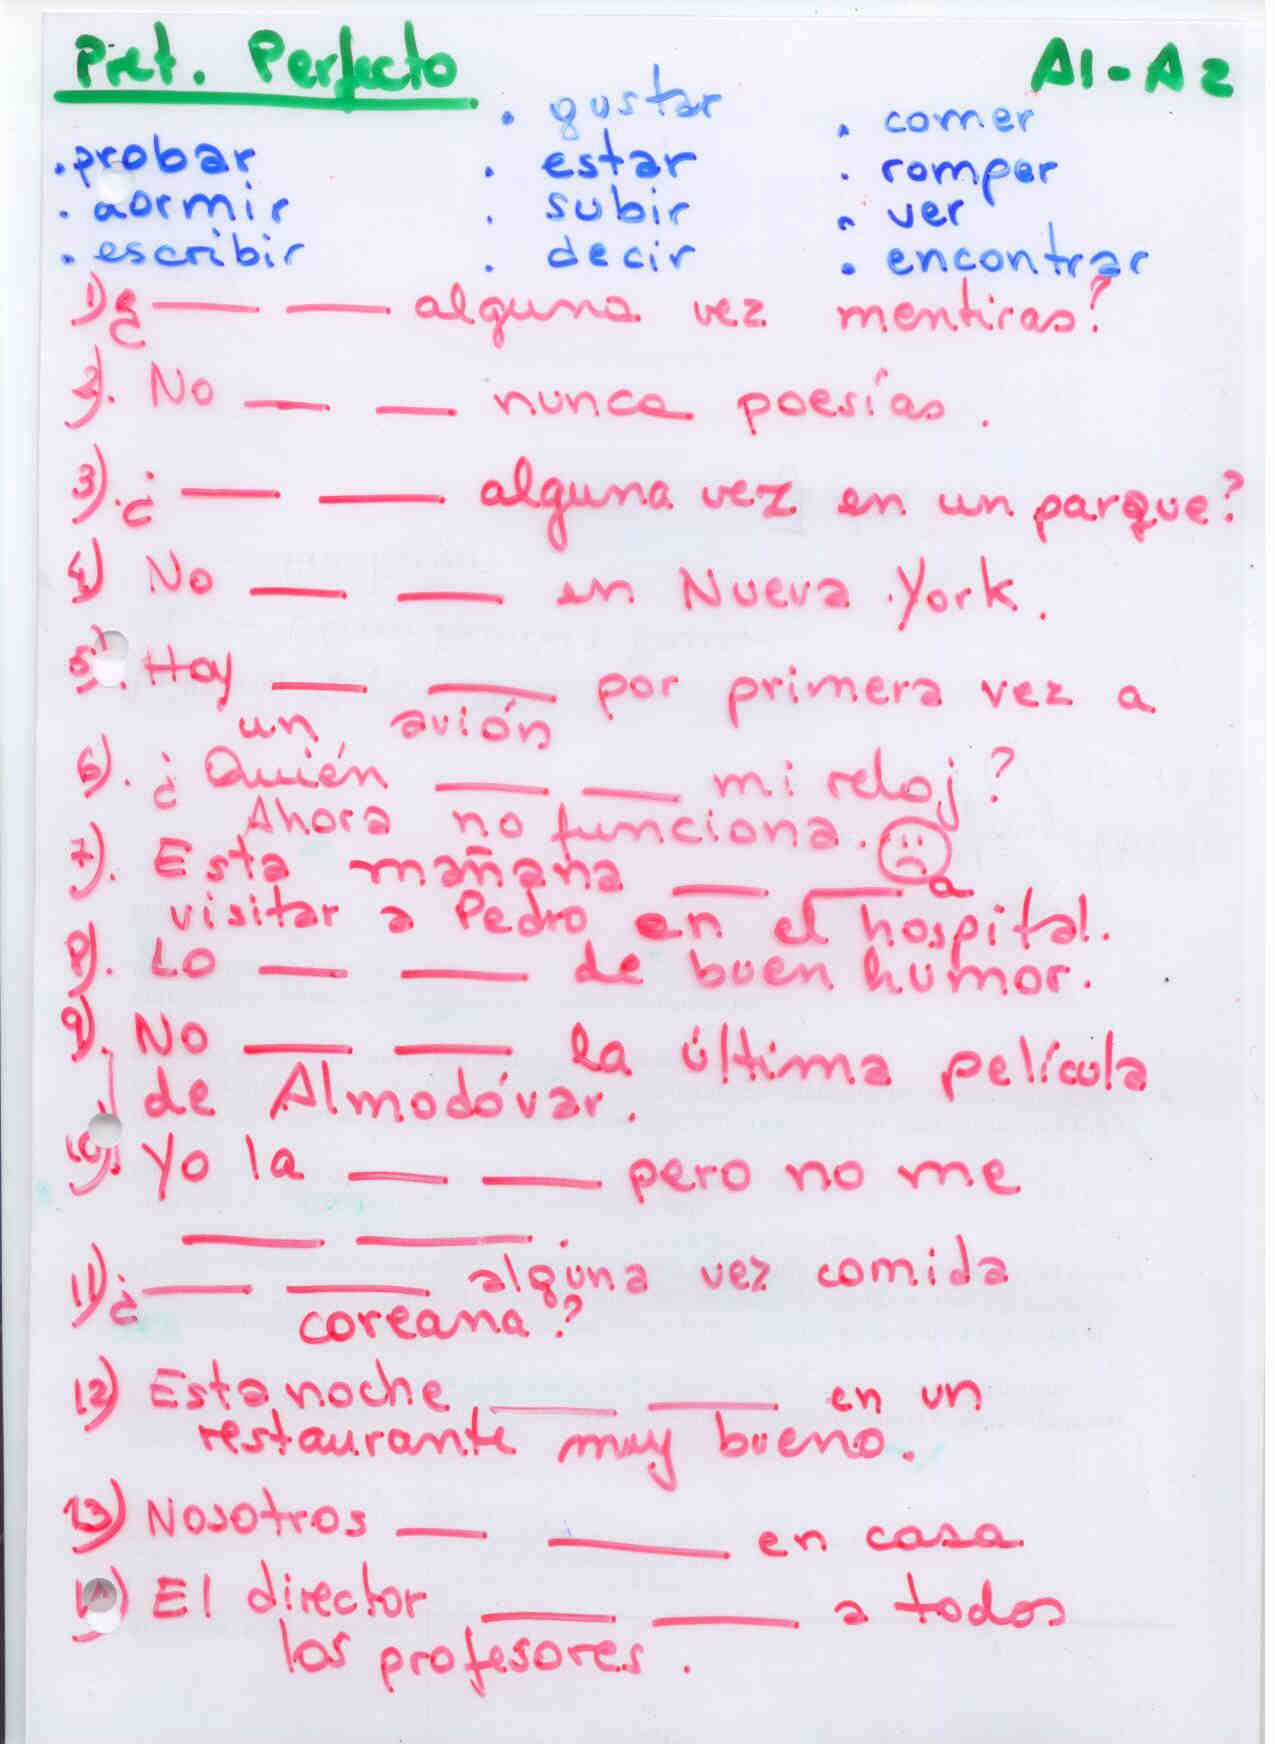 Pret. Perfecto A1-A2
. gustar . comer
. probar . estar . romper
. dormir . subir . ver
. escribir . decir . encontrar
1) ¿___ ___ alguna vez mentiras?
2). No ___ ___ nunca poesías.
3). ¿___ ___ alguna vez en un parque?
4) No ___ ___ en Nueva York.
5). Hoy ___ ___ por primera vez a
un avión
6). ¿Quién ___ ___ mi reloj?
Ahora no funciona.
7). Esta mañana ___ ___ a
visitar a Pedro en el hospital.
8). Lo ___ ___ de buen humor.
9). No ___ ___ la última película
de Almodóvar.
10). Yo la ___ ___ pero no me
___ ___.
11) ¿___ ___ alguna vez comida
coreana?
12) Esta noche ___ ___ en un
restaurante muy bueno.
13) Nosotros ___ ___ en casa
14) El director ___ ___ a todos
los profesores.